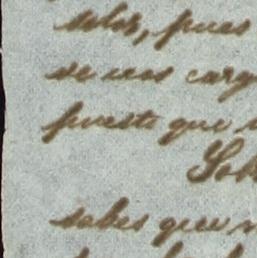 solos, pues
se nos carg
puesto que
Sob
sabes que n